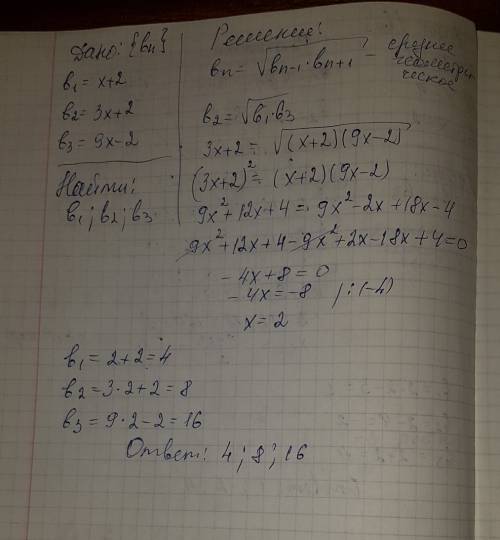 Дано: {bn}
b₁ = x+2
b₂ = 3x+2
b₃ = 9x-2
Найти:
b₁; b₂; b₃
Решение:
bn = √(bn-1 · bn+1) - среднее геометрическое
b₂ = √(b₁·b₃)
3x+2 = √((x+2)(9x-2))
(3x+2)² = (x+2)(9x-2)
9x²+12x+4 = 9x²-2x+18x-4
9x²+12x+4-9x²+2x-18x+4=0
-4x+8=0
-4x=-8 /:(-4)
x=2
b₁ = 2+2=4
b₂ = 3·2+2=8
b₃ = 9·2-2=16
Ответ: 4; 8; 16